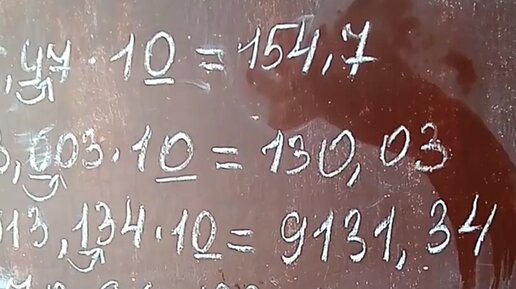 ,47 · 10 = 154,7
3,003 · 10 = 130,03
913,134 · 10 = 9131,34